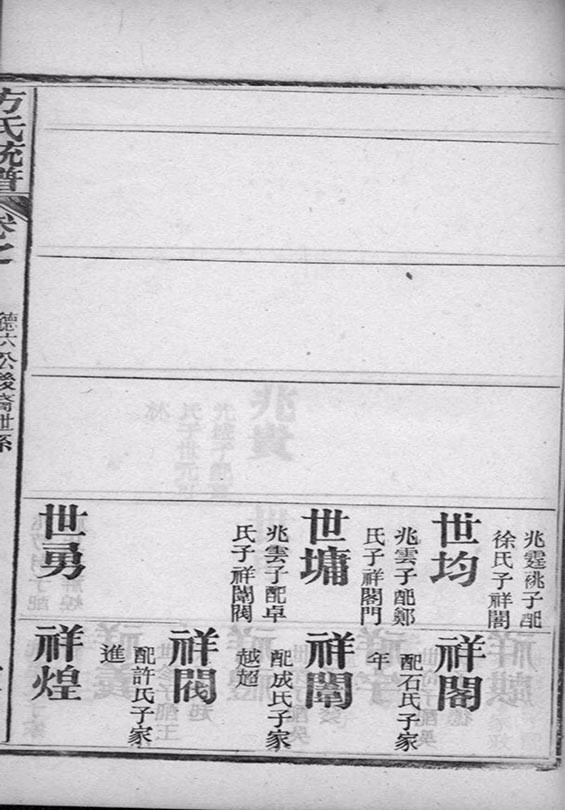 兆霆祧子配
徐氏子祥閣
世均
兆雲子配鄭
氏子祥閣門
世墉
兆雲子配卓
氏子祥闈閥
世勇
祥閣
配石氏子家
年
祥闈
配成氏子家
越超
祥閥
配許氏子家
進
祥煌
方氏統譜
卷之
德六公後裔世系